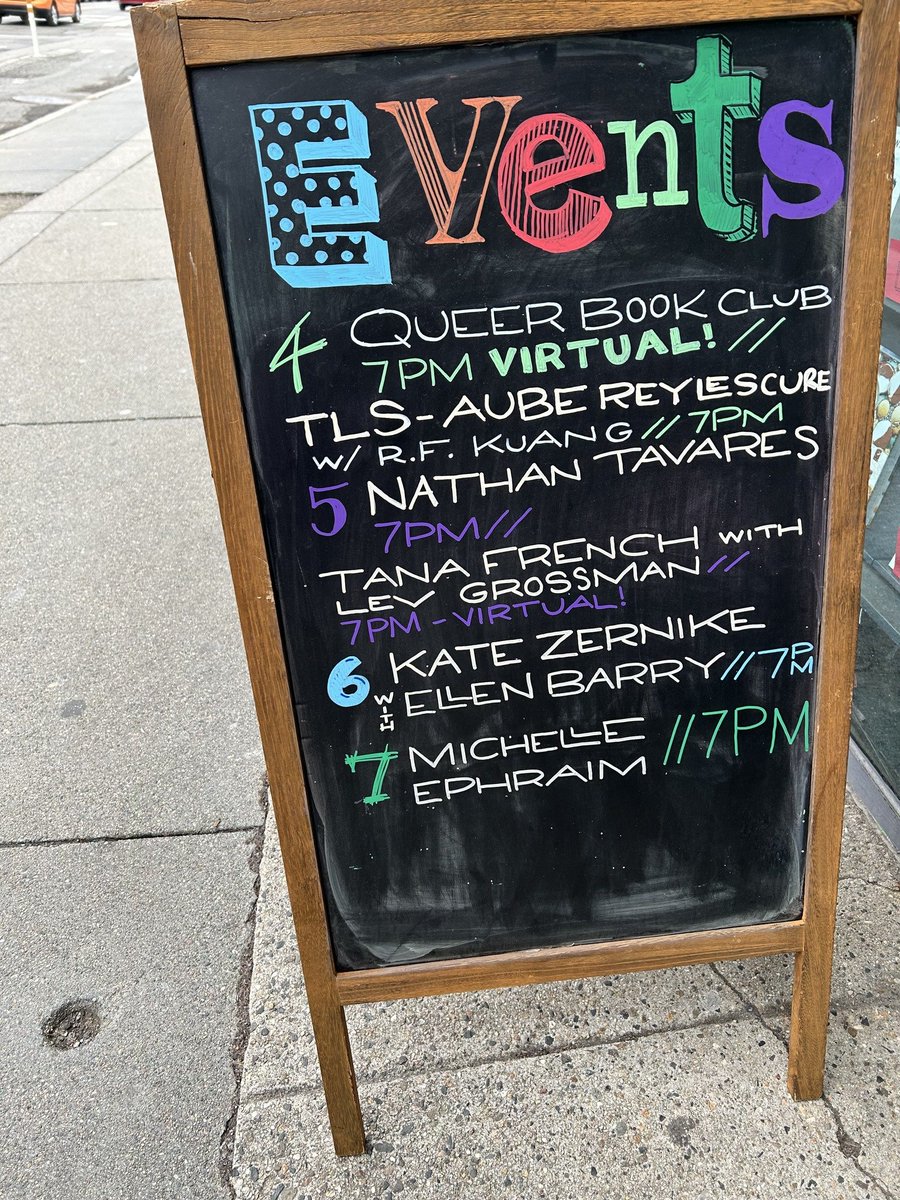 Events
4 QUEER BOOK CLUB
7PM VIRTUAL! //
TLS- AUBE REY LESCURE
W/ R.F. KUANG // 7PM
5 NATHAN TAVARES
7PM //
TANA FRENCH WITH
LEV GROSSMAN //
7PM - VIRTUAL!
6 KATE ZERNIKE
WITH ELLEN BARRY // 7PM
7 MICHELLE
EPHRAIM // 7PM